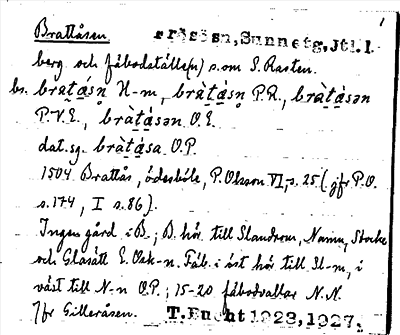 Brattåsen. Frösösn, Sunne tg, Jtl. 1
berg och fäbodställe(n) s.om S. Rasten.
bs. bratásn H-m, bràtásn P.R., bràtásən
P.V.E., bràtásən O.E.
dat.sg. bràtása O.P.
1504 Brattås, ödesböle, P. Olsson VI, s. 25 (jfr P.O.
s. 174, I s. 86).
Ingen gård i B; B hör till Slandrom, Namn,
och Glösått E. Osk-n. Fäb. i öst hör till Sl-m, i
väst till N-n O.P.; 15-20 fäbodvallar N.N.
Jfr Gilleråsen. T. Bucht 1923, 1927.